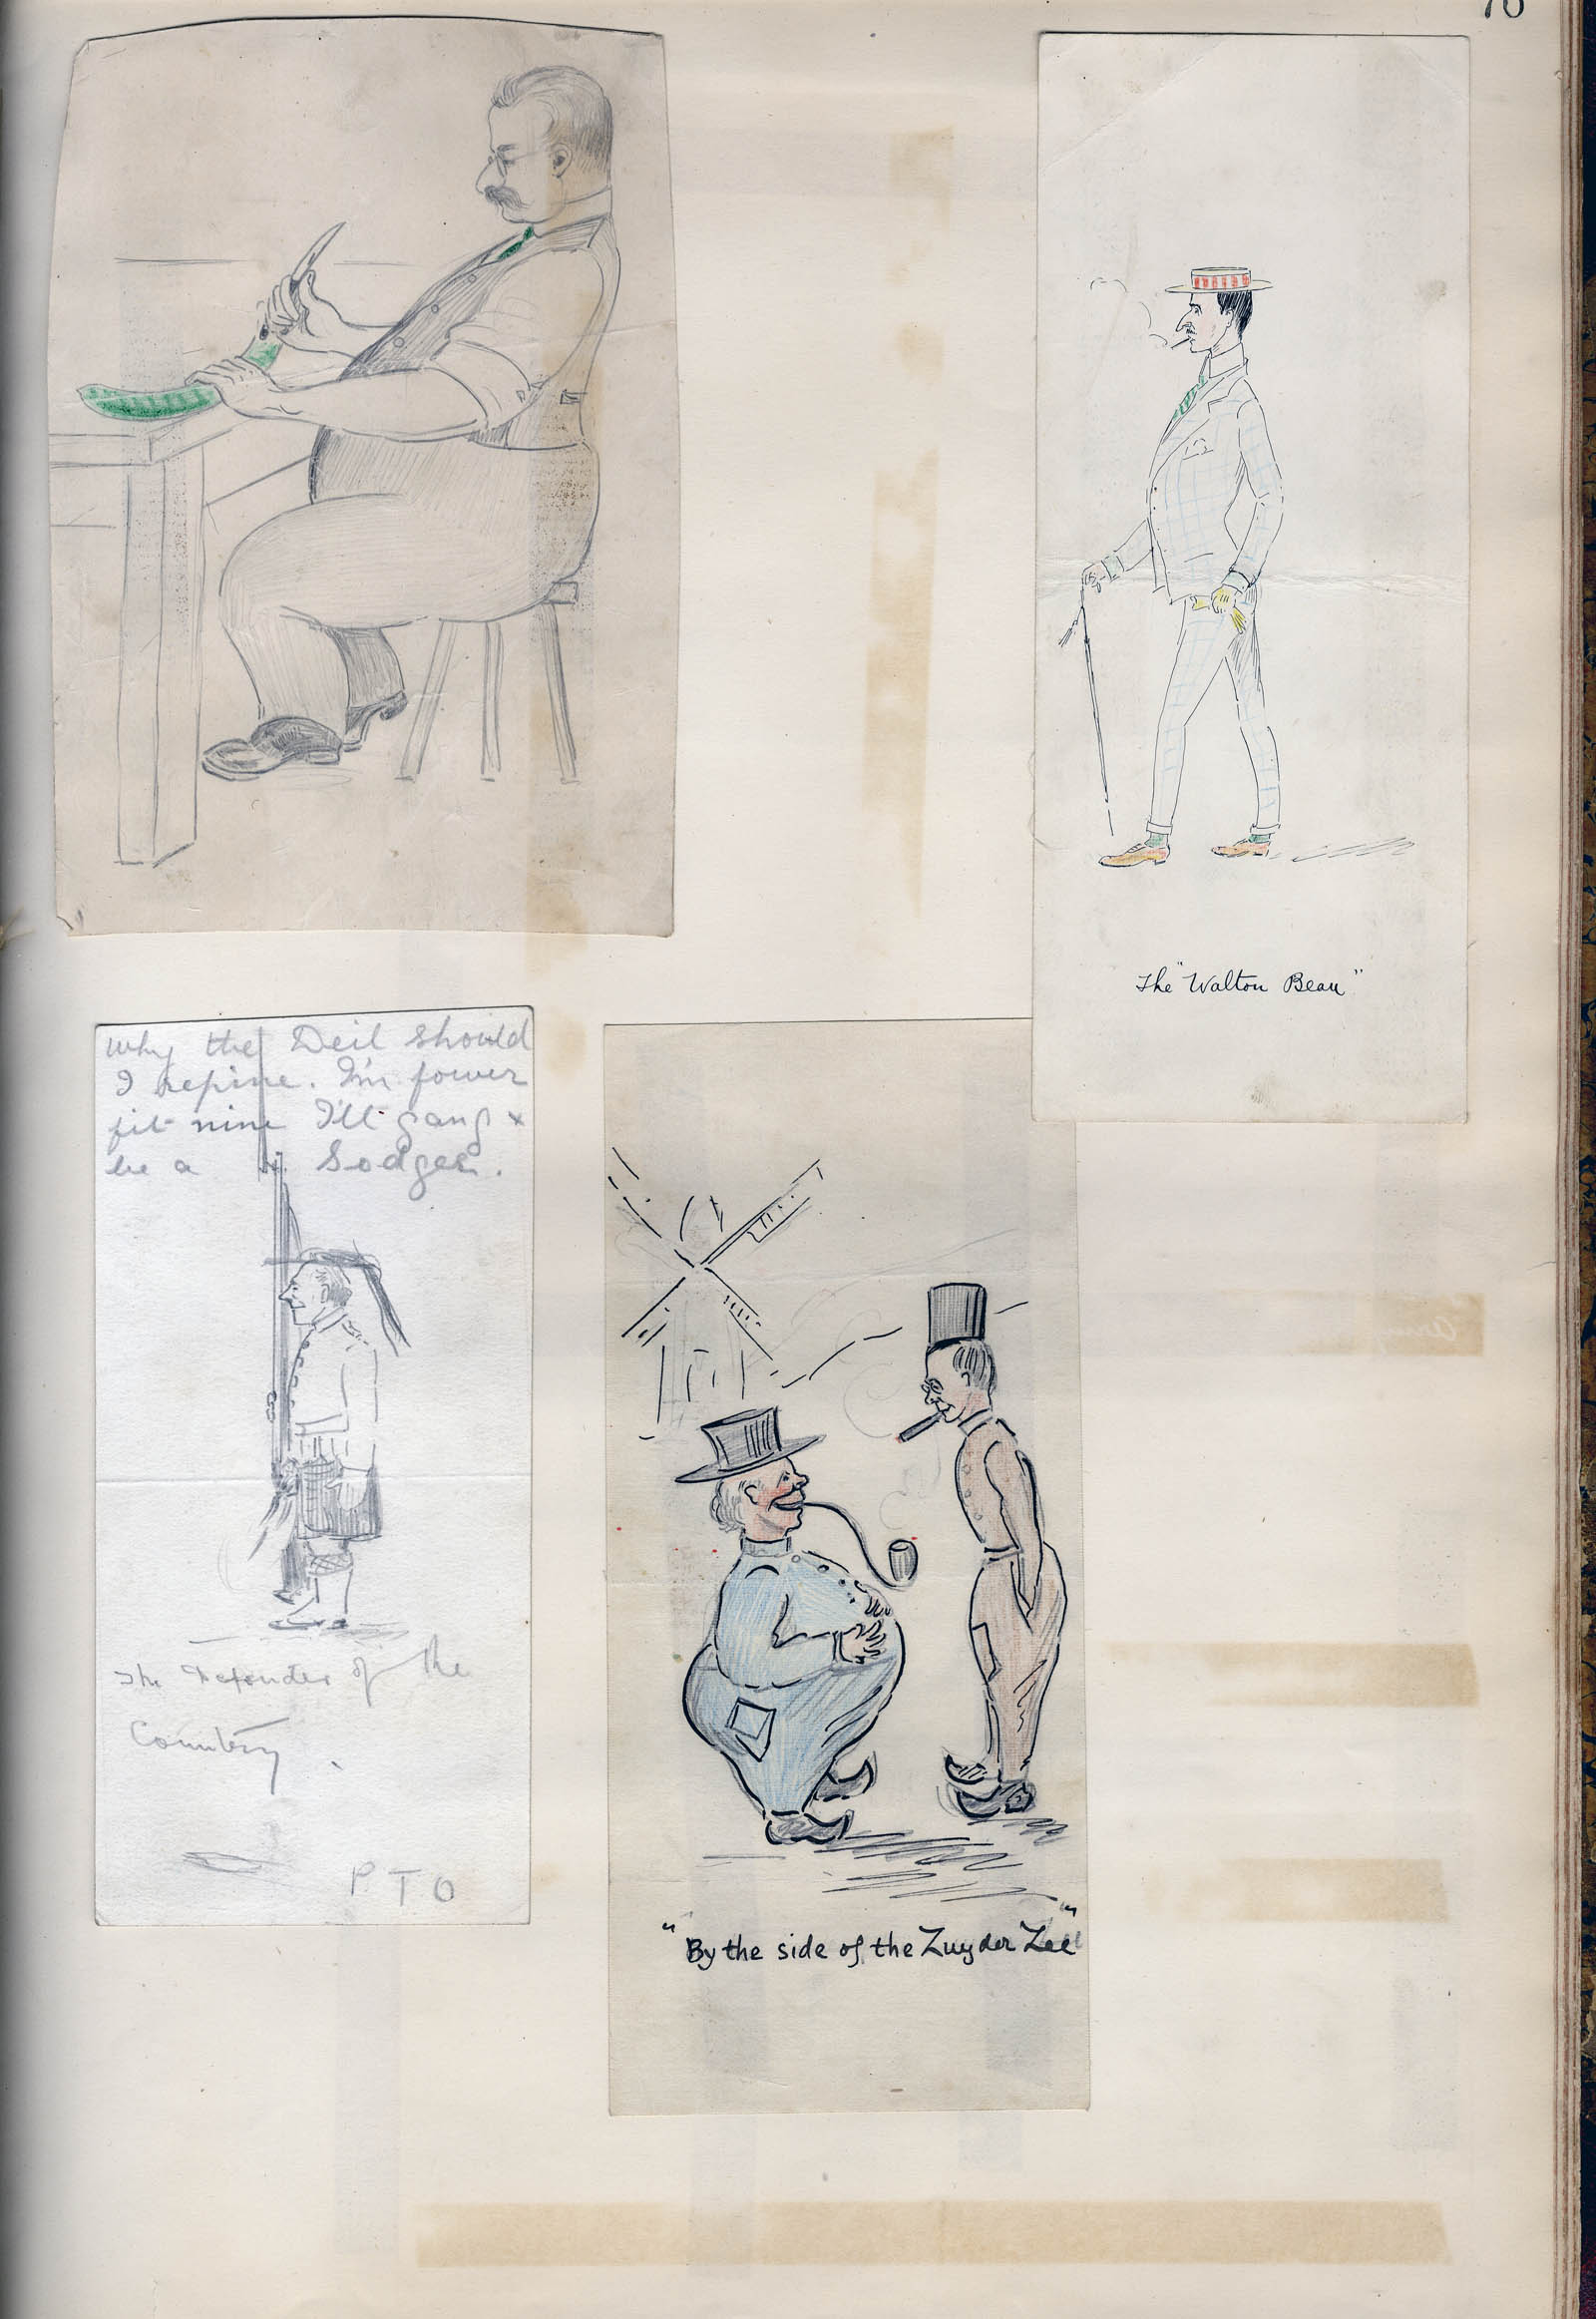 The "Walton Beau"
Why the Deil should
I repine. I'm fower
fit nine I'll gang &
be a Sodger.
The Defender of the
Country.
P T O
"By the side of the Zuyder Zee"